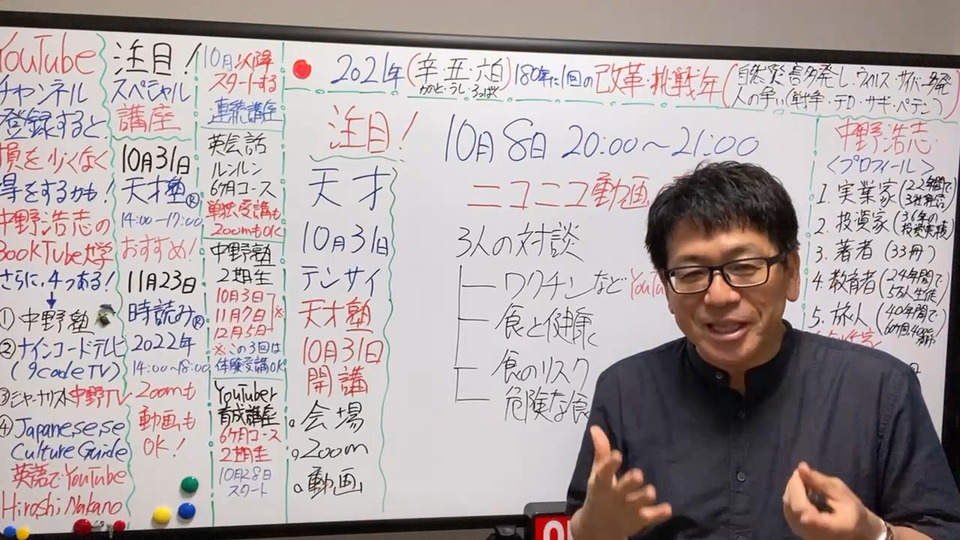 YouTube
チャンネル
登録すると
損を少くなく
得をするかも!
中野浩志の
BookTube大学
さらに、4つある!
① 中野塾
② ナインコードテレビ
(9code TV)
③ジャーナリスト中野TV
④ Japanese,se
Culture Guide
英語でYouTube
Hiroshi Nakano
注目!
スペシャル
講座
10月31日
天才塾®
14:00~17:00
おすすめ!
11月23日
時読み®
2022年
14:00~18:00
Zoomも
動画も
OK!
10月以降
スタートする
連続講座
英会話
ルンルン
6ヶ月コース
単独受講も
ZoomもOK
中野塾
2期生
10月3日
11月7日
12月5日
※
※この3回は
体験受講OK
YouTuber
育成講座
6ヶ月コース
2期生
10月28日
スタート
2021年(辛・丑・六白)180年に1回の改革・挑戦年
かのと・うし・ろっぱく
人の争い(戦争・テロ・サギ・ペテン)
注目!
天才
10月31日
テンサイ
天才塾
10月31日
開講
会場
Zoom
動画
10月8日 20:00~21:00
ニコニコ動画
3人の対談
ワクチンなど YouTu
食と健康
食のリスク
危険な食
中野浩志
<プロフィール>
1. 実業家
2. 投資家
3. 著者(33冊)
4. 教育者(24年間で
5万人生徒
5. 旅人(40年間で